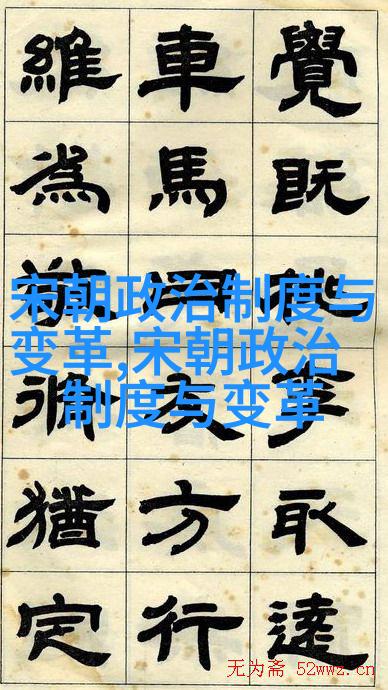 覺既取
車馬方行
維為猶定
宋朝政治制度与
变革,宋朝政治
制度与变革
无为斋 52wwz.cn